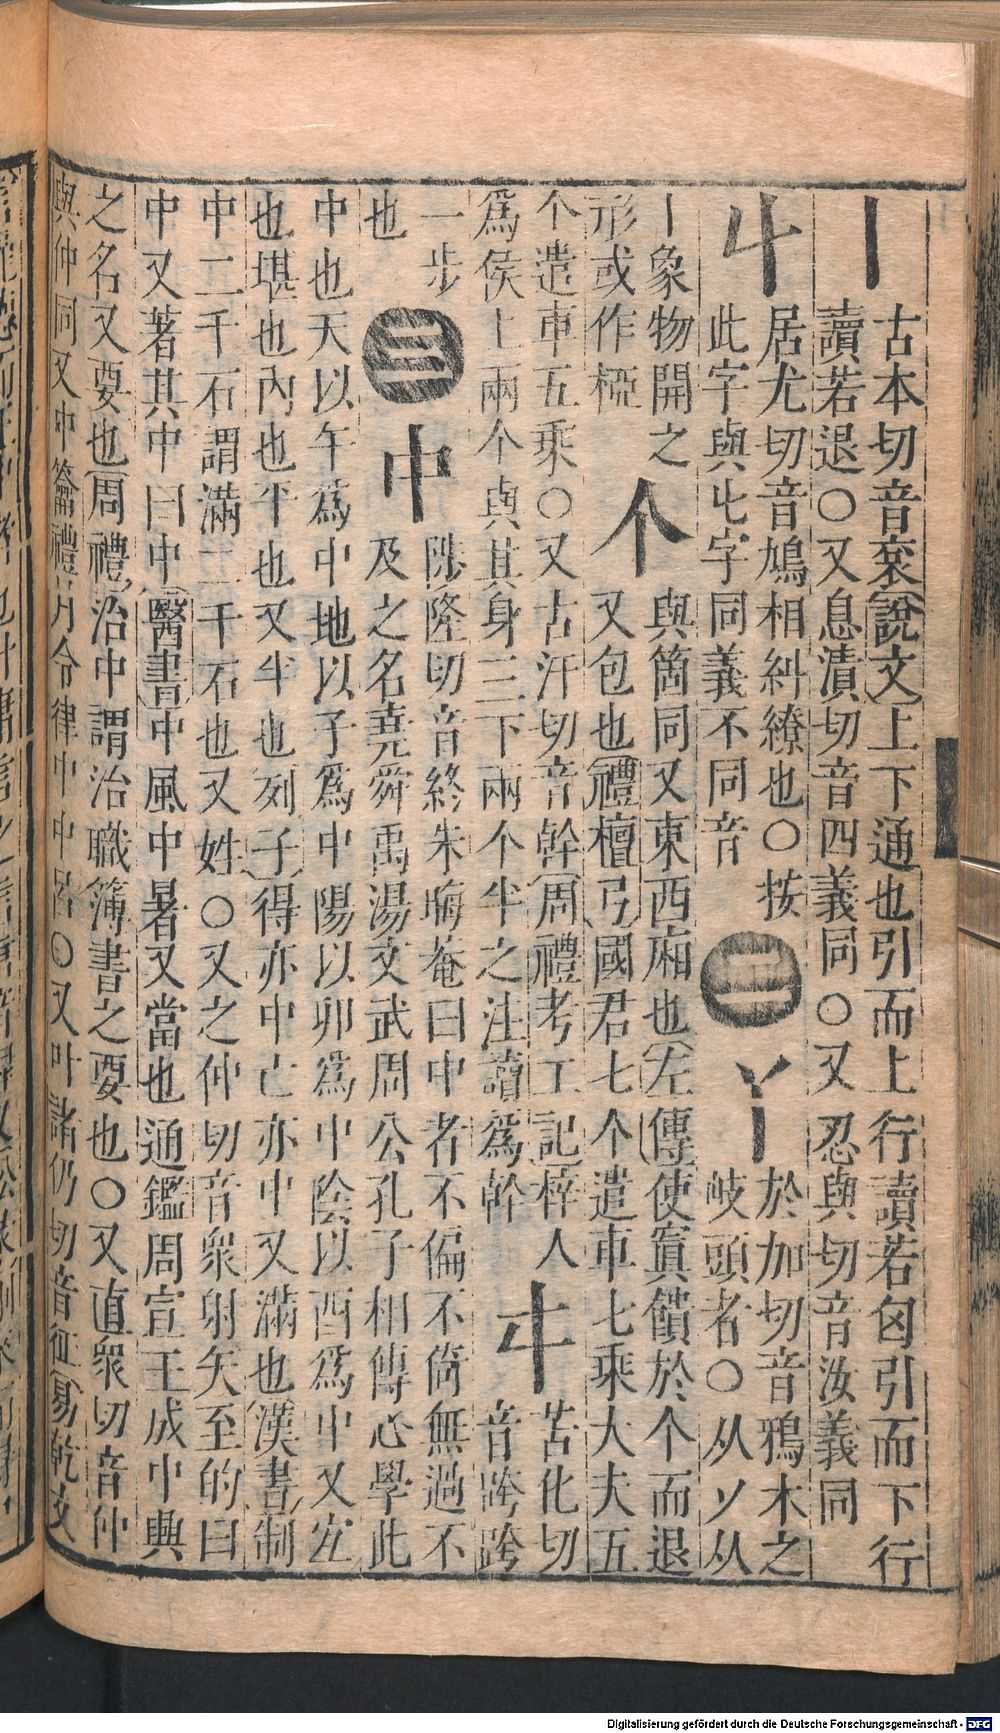 丨
古本切音衮(說文)上下通也引而上行讀若囟引而下行
讀若退○又息漬切音四義同○又忍與切音汝義同
丩
居尤切音鳩相糾繚也○按
此字與丩字同義不同音
二
丫
於加切音鴉木之
岐頭者○从丷从
丨象物開之
形或作椏
个
與箇同又東西廂也(左傳)使寘饋於个而退
又包也(禮檀弓)國君七个遣車七乘大夫五
个遣車五乘○又古汗切音幹(周禮考工記)梓人
爲侯上兩个與其身三下兩个半之注讀爲幹
㐄
苦化切
音跨跨
一步
也
三
中
陟隆切音終朱晦菴曰中者不偏不倚無過不
及之名堯舜禹湯文武周公孔子相傳心學此
中也天以午爲中地以子爲中陽以卯爲中陰以酉爲中又宐
也堪也內也平也又半也(列子)得亦中亡亦中又滿也(漢書)制
中二千石謂滿二千石也又姓○又之仲切音衆射矢至的曰
中又著其中曰中(醫書)中風中暑又當也通鑑周宣王成中興
之名又要也(周禮)治中謂治職簿書之要也○又直衆切音仲
與仲同又中籥禮月令律中中呂○又叶諸仍切音征(易乾文
Digitalisierung gefördert durch die Deutsche Forschungsgemeinschaft - DFG